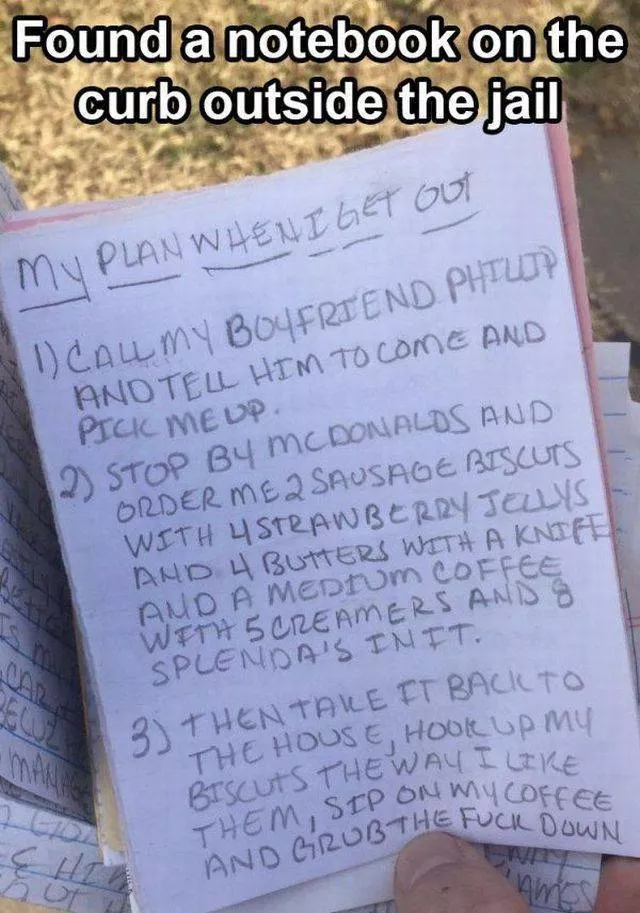 Found a notebook on the
curb outside the jail
MY PLAN WHEN I GET OUT
1) CALL MY BOYFRIEND PHILIP
AND TELL HIM TO COME AND
PICK ME UP.
2) STOP BY MCDONALDS AND
ORDER ME 2 SAUSAGE BISCUTS
WITH 4 STRAWBERRY JELLYS
AND 4 BUTTERS WITH A KNIFE
AND A MEDIUM COFFEE
WITH 5 CREAMERS AND 8
SPLENDA'S IN IT.
3) THEN TAKE IT BACK TO
THE HOUSE, HOOK UP MY
BISCUTS THE WAY I LIKE
THEM, SIP ON MY COFFEE
AND GRUB THE FUCK DOWN